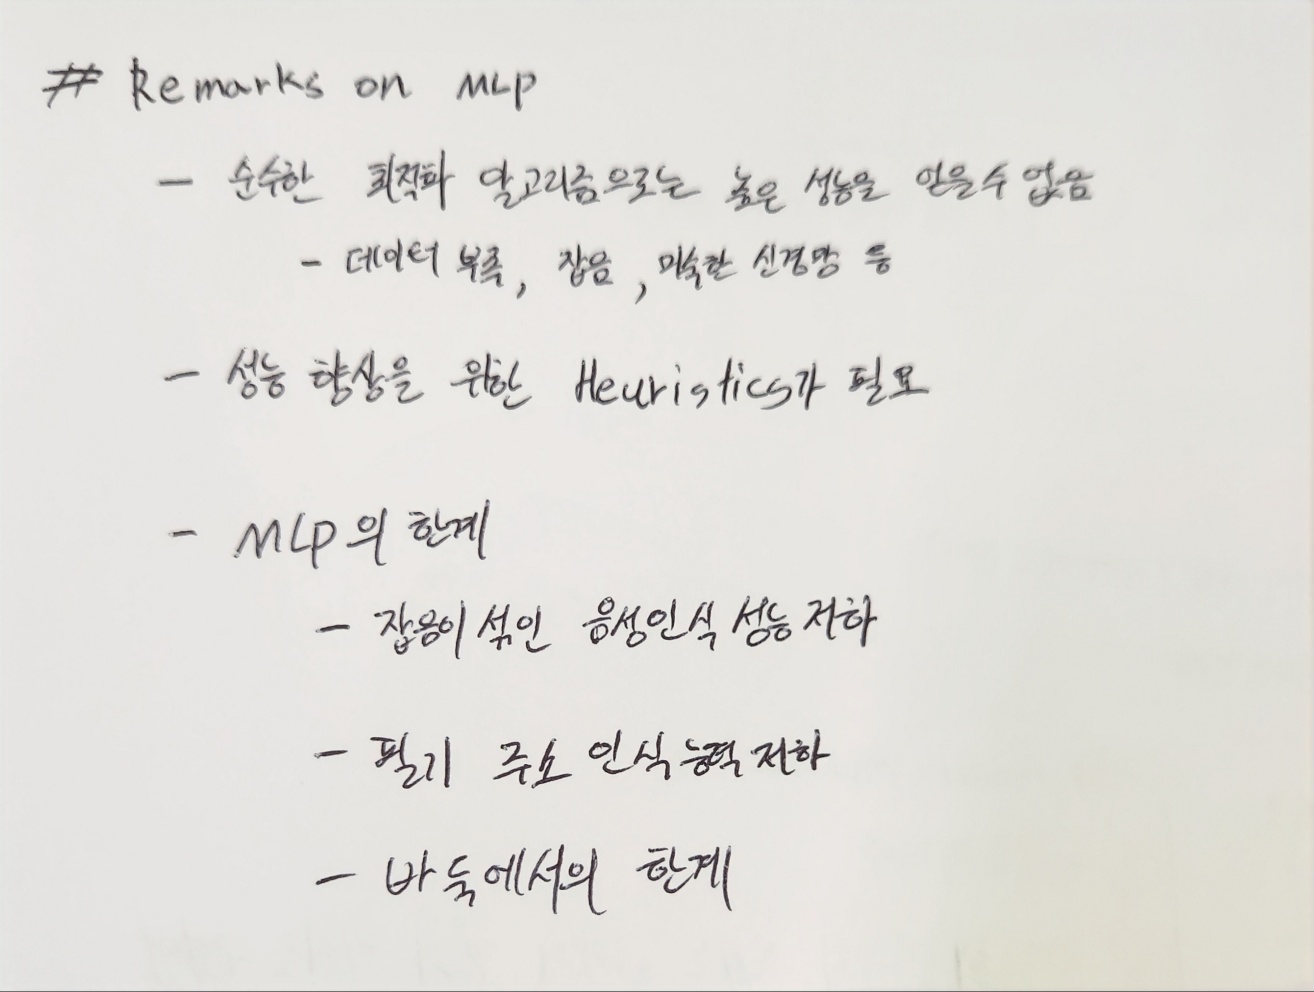 # Remarks on MLP
- 순수한 최적화 알고리즘으로는 높은 성능을 얻을 수 없음
- 데이터 부족, 잡음, 미숙한 신경망 등
- 성능 향상을 위한 Heuristics가 필요
- MLP의 한계
- 잡음이 섞인 음성인식 성능 저하
- 필기 주소 인식 능력 저하
- 바둑에서의 한계